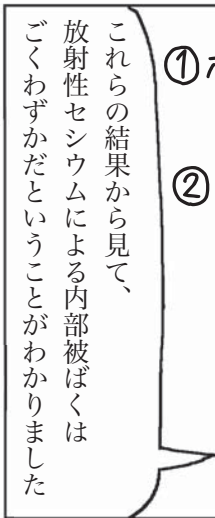 ①
②
これらの結果から見て、
放射性セシウムによる内部被ばくは
ごくわずかだということがわかりました